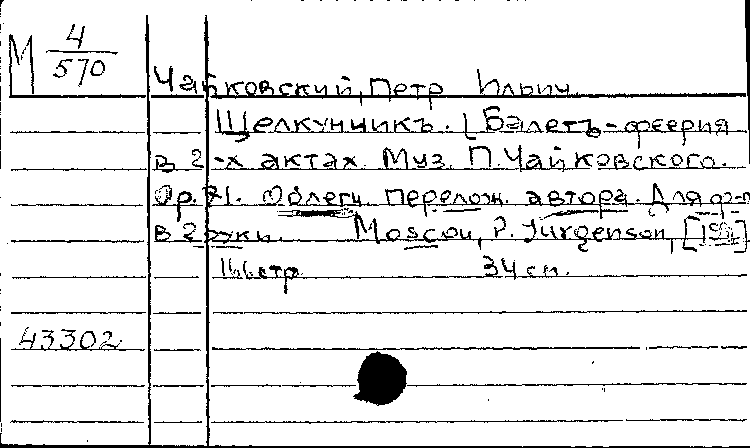 М 4/570
Чайковский, Петр Ильич
Щелкунчикъ. [Балетъ-феерия
в 2-х актах. Муз. П. Чайковского.
Op. 71. Облегч. перелож. автора. Для ф-п
в 2 руки. Moscou, P. Jurgenson,
стр. 34 см.
43302